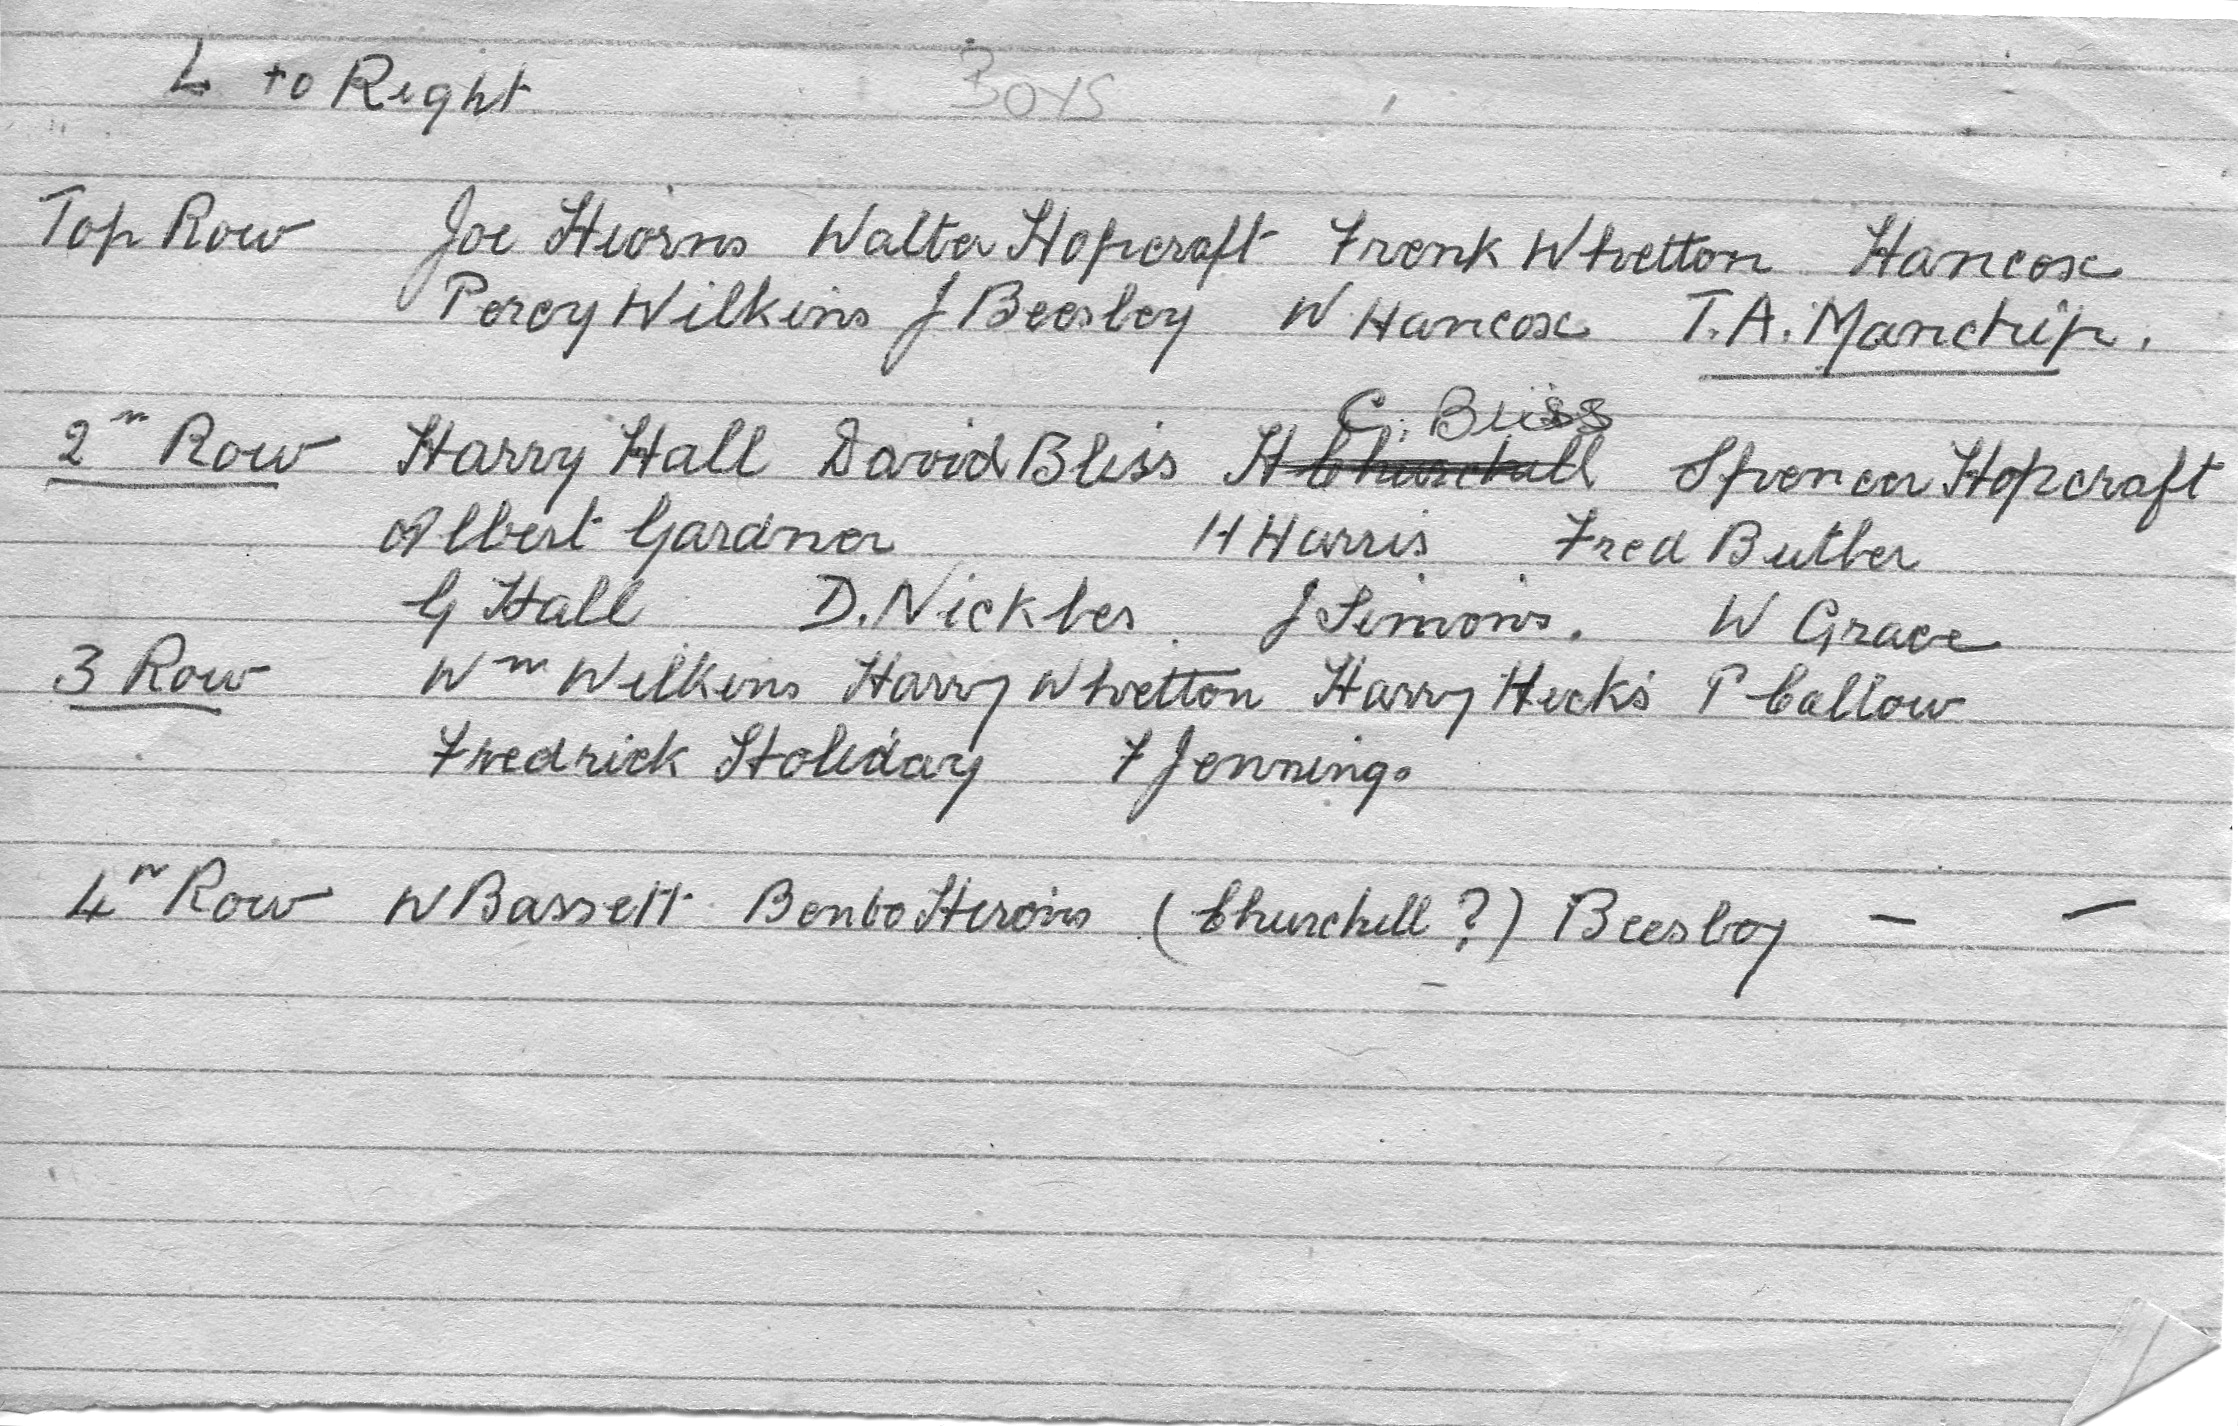 L to Right Boys
Top Row Joe Hiorns Walter Hopcraft Frank Whetton Hancox
Percy Wilkins J Beesley W Hancox T.A. Manchip.
C. Bliss
2n Row Harry Hall David Bliss H Churchill Spencer Hopcraft
Albert Gardner H Harris Fred Butler
G Hall D. Nickles J Simons. W Grace
3 Row Wm Wilkins Harry Whetton Harry Hicks P Callow
Fredrick Holiday F Jennings
4n Row W Bassett Benbo Hirons (Churchill ?) Beesley – –